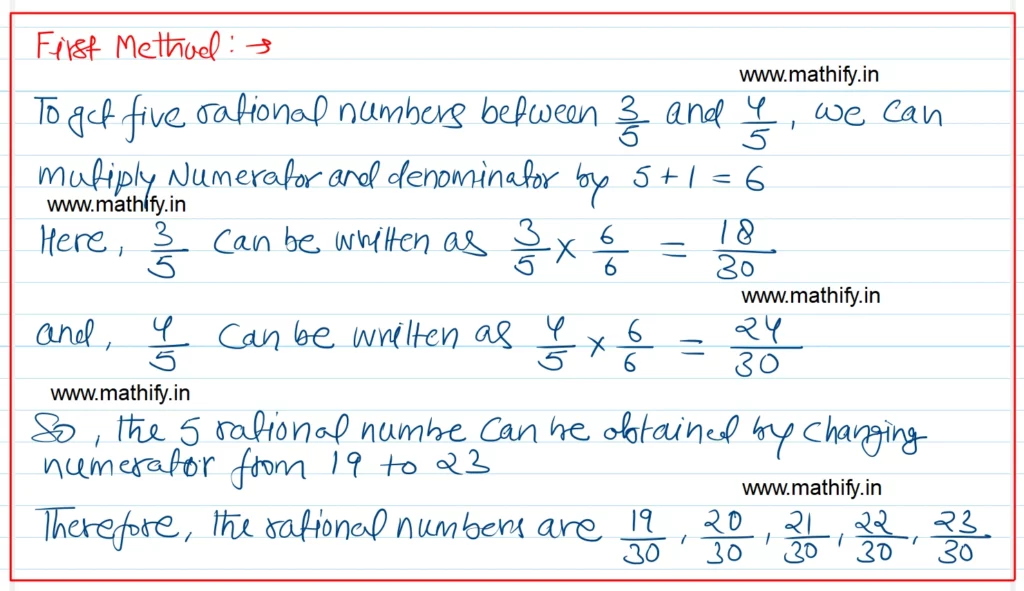 First Method: →
www.mathify.in
To get five rational numbers between 3/5 and 4/5, we can
multiply Numerator and denominator by 5+1 = 6
www.mathify.in
Here, 3/5 can be written as 3/5 × 6/6 = 18/30
www.mathify.in
and, 4/5 can be written as 4/5 × 6/6 = 24/30
www.mathify.in
So, the 5 rational numbe can be obtained by changing
numerator from 19 to 23
www.mathify.in
Therefore, the rational numbers are 19/30, 20/30, 21/30, 22/30, 23/30